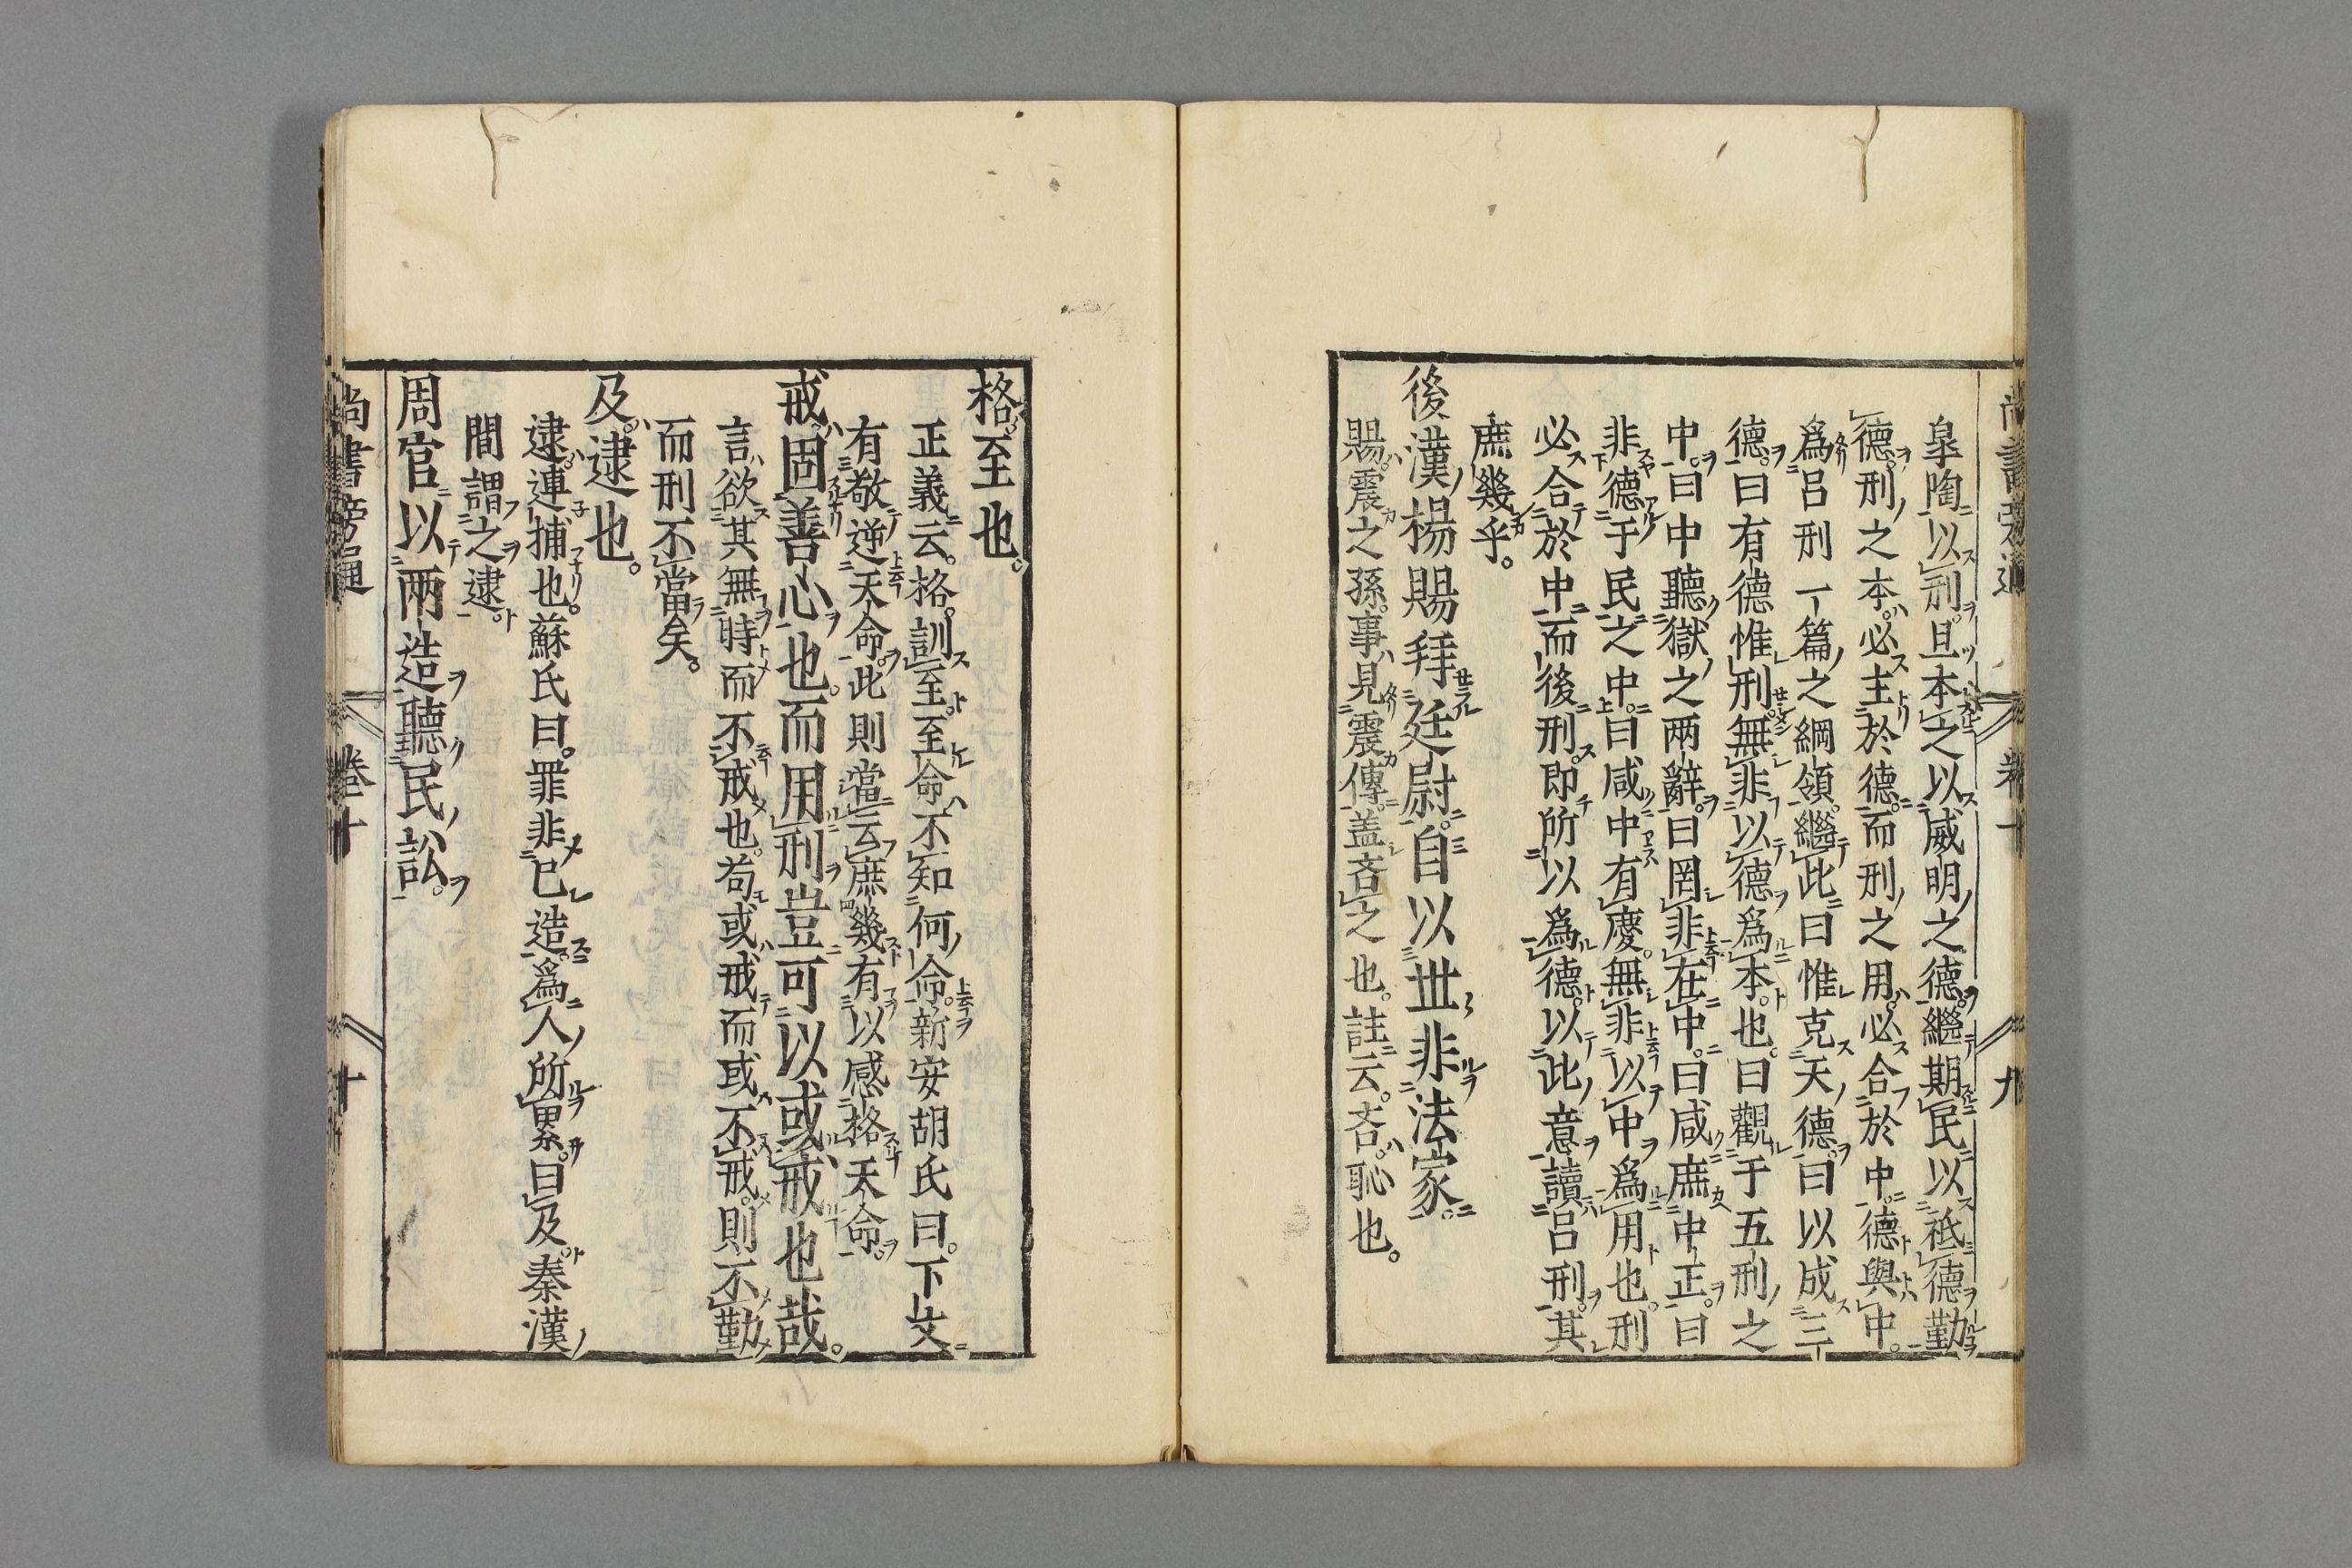 尚書旁通 卷十 九
皐陶以刑且本之以威明之德繼期民以祗德勤
德刑之本必主於德而刑之用必合於中德與中
爲吕刑一篇之綱領繼此曰惟克天德曰以成三
德曰有德惟刑無非以德爲本也曰觀于五刑之
中曰中聽獄之兩辭曰罔非在中曰咸庶中正曰
非德于民之中曰咸中有慶無非以中爲用也刑
必合於中而後刑即所以爲德以此意讀吕刑其
庶幾乎
後漢楊賜拜廷尉自以世非法家
賜震之孫事見震傳盖吝之也註云吝恥也
格至也
正義云格訓至至命不知何命新安胡氏曰下文
有敬逆天命此則當云庶幾有以感格天命
戒固善心也而用刑豈可以或戒也哉
言欲其無時而不戒也苟或戒而或不戒則不勤
而刑不當矣
及逮也
逮連捕也蘇氏曰罪非已造爲人所累曰及秦漢
間謂之逮
周官以兩造聽民訟
尚書旁通 卷十 十